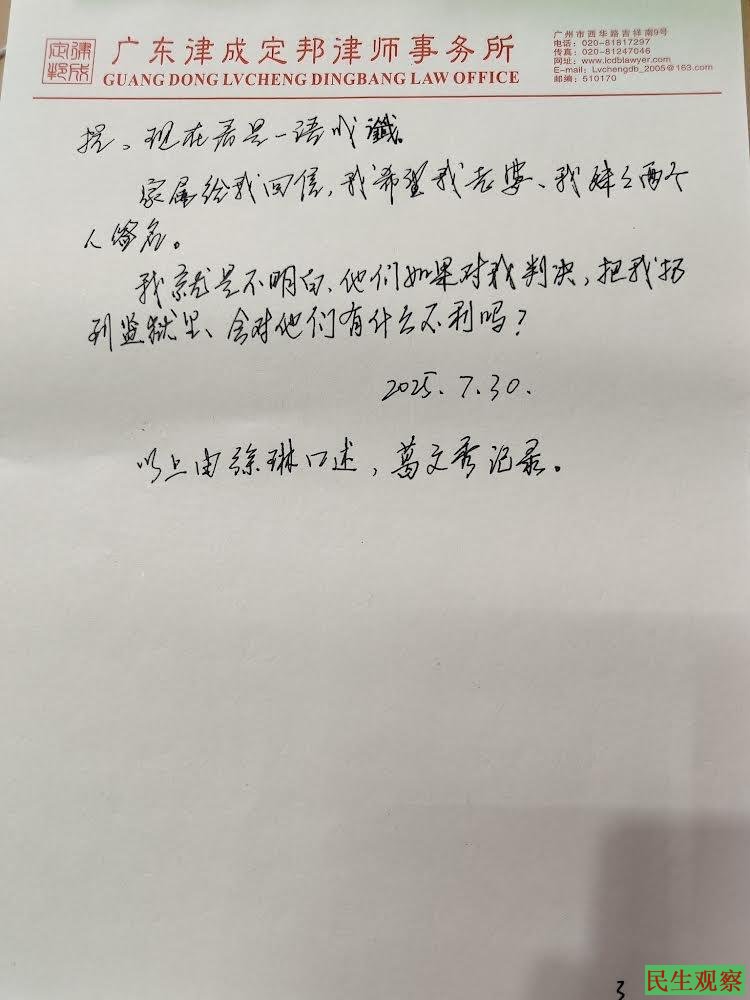 广东律成定邦律师事务所
GUANG DONG LVCHENG DINGBANG LAW OFFICE
广州市西华路吉祥南9号
电话：020-81817297
传真：020-81247046
网址：www.lcdblawyer.com
E-mail：Lvchengdb_2005@163.com
邮编：510170
现在看是一语成谶。
家属给我回信，我希望我老婆、我妹这两个
人签名。
我就是不明白，他们如果对我判决，把我扔
到监狱里、会对他们有什么不利吗？
2025.7.30.
以上由徐琳口述，葛文秀记录。
3
民生观察